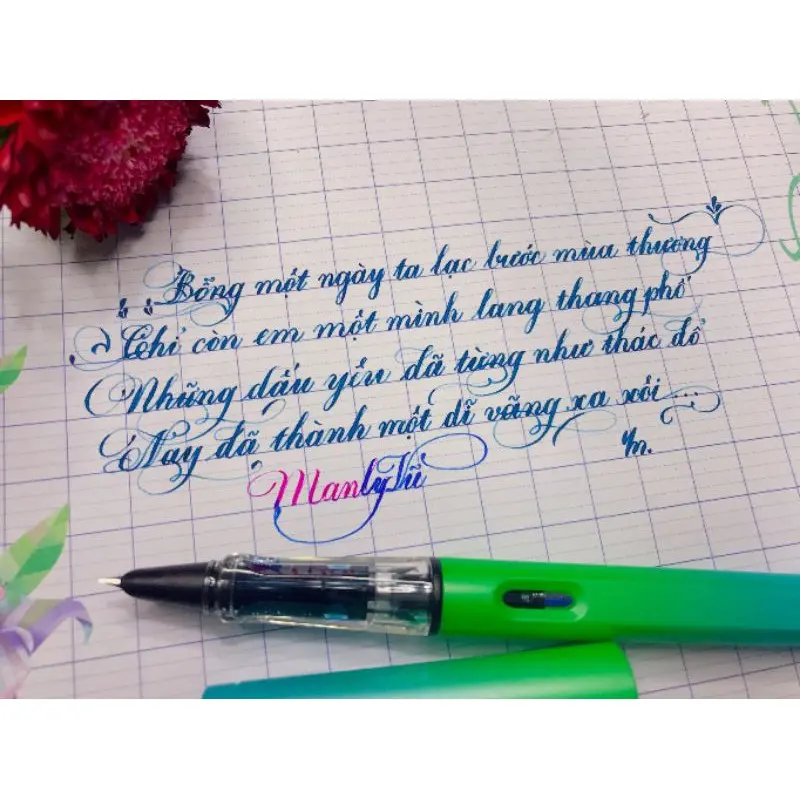 Bỗng một ngày ta lạc bước mùa thương
Chỉ còn em một mình lang thang phố
Những dấu yêu đã từng như thác đổ
Nay đã thành một dĩ vãng xa xôi ...